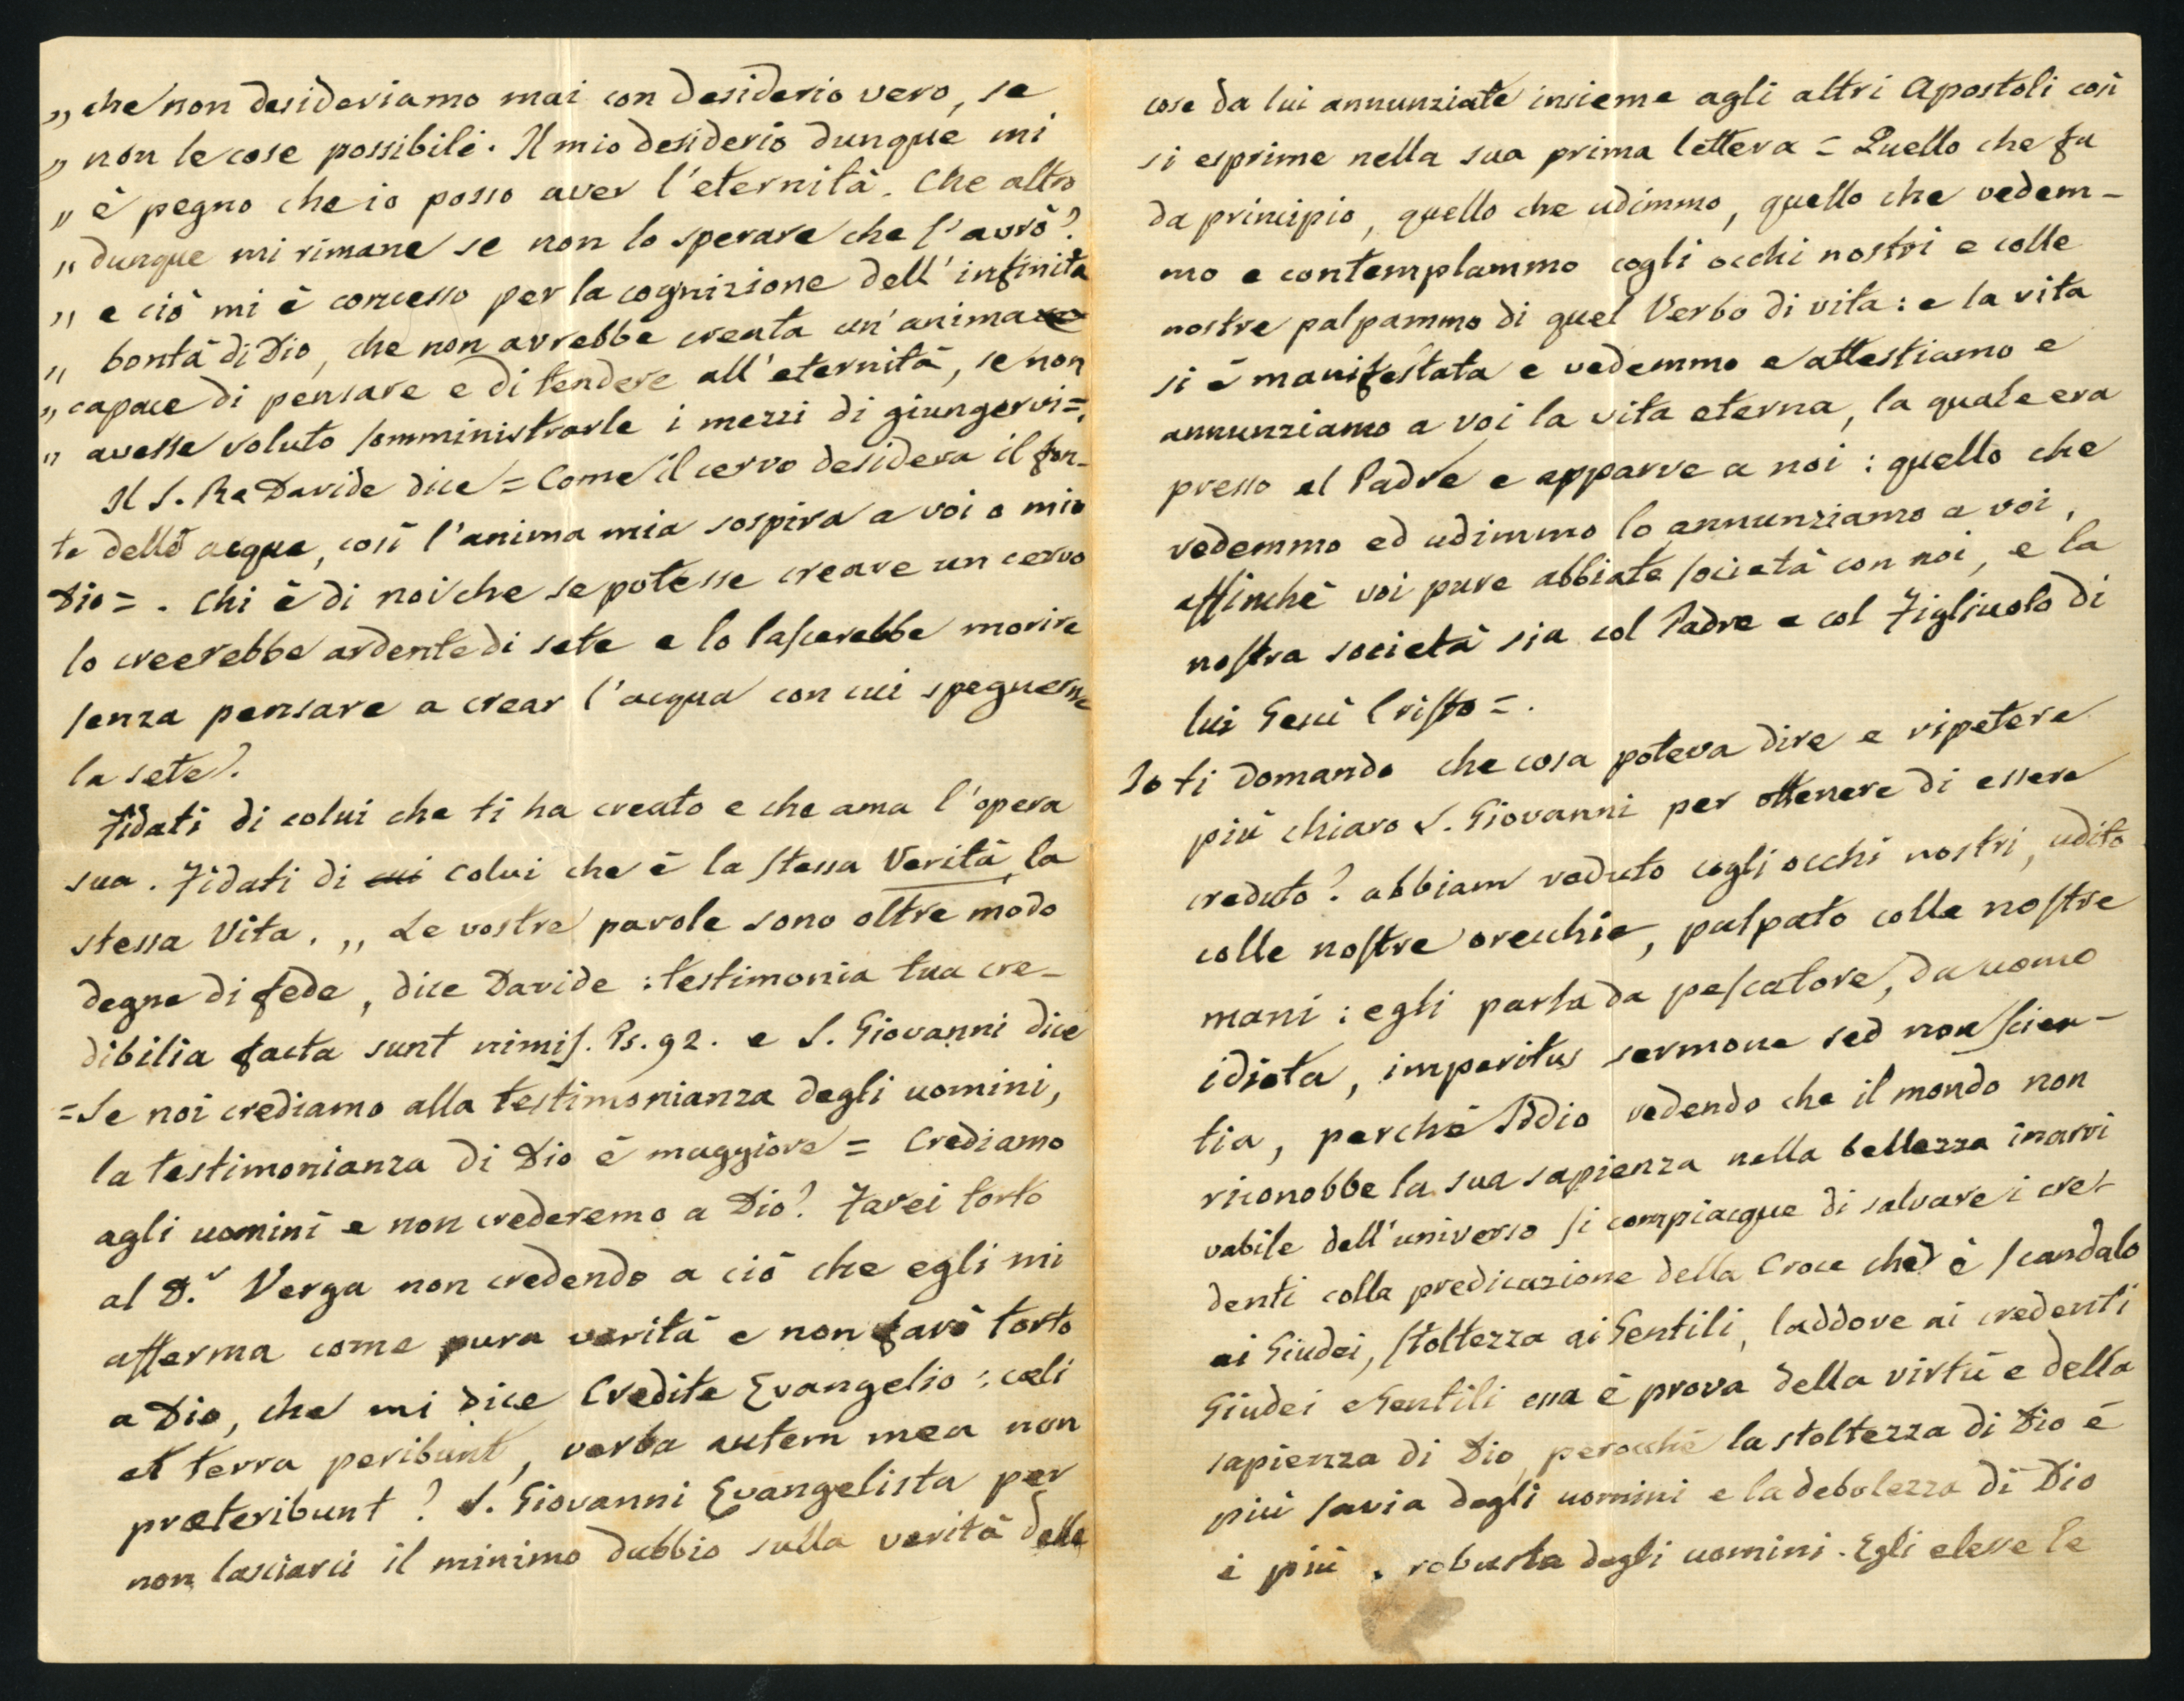 „ che non desideriamo mai con desiderio vero, se
„ non le cose possibili. Il mio desiderio dunque mi
„ è pegno che io posso aver l'eternità. Che altro
„ dunque mi rimane se non lo sperare che l'avrò?
„ e ciò mi è concesso per la cognizione dell'infinita
„ bontà di Dio, che non avrebbe creata un'anima
„ capace di pensare e di tendere all'eternità, se non
„ avesse voluto somministrarle i mezzi di giungervi=.
Il S. Re Davide dice = Come il cervo desidera il fon-
te delle acque, così l'anima mia sospira a voi o mio
Dio = . Chi è di noi che se potesse creare un cervo
lo creerebbe ardente di sete e lo lascerebbe morire
senza pensare a crear l'acqua con cui spegnerne
la sete?
Fidati di colui che ti ha creato e che ama l'opera
sua. Fidati di cui Colui che è la stessa Verità, la
stessa Vita. „ Le vostre parole sono oltre modo
degne di fede, dice Davide : testimonia tua cre-
dibilia facta sunt nimis. Ps. 92. e S. Giovanni dice
= Se noi crediamo alla testimonianza degli uomini,
la testimonianza di Dio è maggiore = Crediamo
agli uomini e non crederemo a Dio? Farei torto
al D.r Verga non credendo a ciò che egli mi
afferma come pura verità e non farò torto
a Dio, che mi dice Credite Evangelio : cæli
et terra peribunt, verba autem mea non
præteribunt? S. Giovanni Evangelista per
non lasciarci il minimo dubbio sulla verità delle
cose da lui annunziate insieme agli altri Apostoli così
si esprime nella sua prima lettera = Quello che fu
da principio, quello che udimmo, quello che vedem-
mo e contemplammo cogli occhi nostri e colle
nostre palpammo di quel Verbo di vita : e la vita
si è manifestata e vedemmo e attestiamo e
annunziamo a voi la vita eterna, la quale era
presso al Padre e apparve a noi : quello che
vedemmo ed udimmo lo annunziamo a voi,
affinchè voi pure abbiate società con noi, e la
nostra società sia col Padre e col Figliuolo di
lui Gesù Cristo = .
Io ti domando che cosa poteva dire e ripetere
più chiaro S. Giovanni per ottenere di essere
creduto? abbiam veduto cogli occhi nostri, udito
colle nostre orecchie, palpato colle nostre
mani : egli parla da pescatore, da uomo
idiota, imperitus sermone sed non scien-
tia, perchè Iddio vedendo che il mondo non
riconobbe la sua sapienza nella bellezza inarri
vabile dell'universo si compiacque di salvare i cre-
denti colla predicazione della Croce che è scandalo
ai Giudei, stoltezza ai Gentili, laddove ai credenti
Giudei e Gentili essa è prova della virtù e della
sapienza di Dio, perocchè la stoltezza di Dio è
più savia degli uomini e la debolezza di Dio
è più robusta degli uomini. Egli elesse le